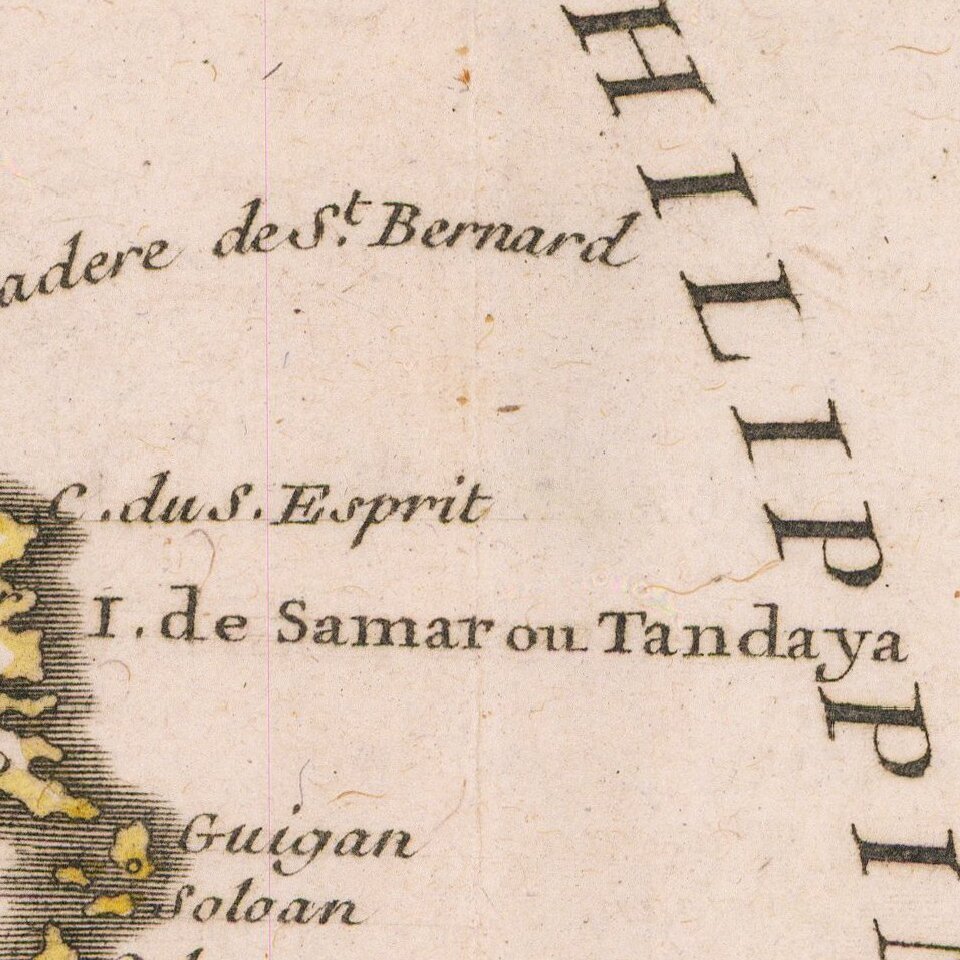 HILIPPI
adere de S.t Bernard
C. du S. Esprit
I. de Samar ou Tandaya
Guigan
Soloan